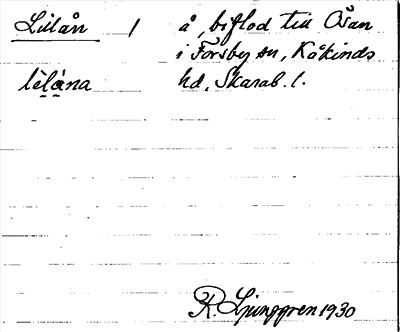 Lillån 1 å, biflod till Ösan
i Forsby sn, Kåkinds
lèlána hd, Skarab. l.
R. Ljunggren 1930